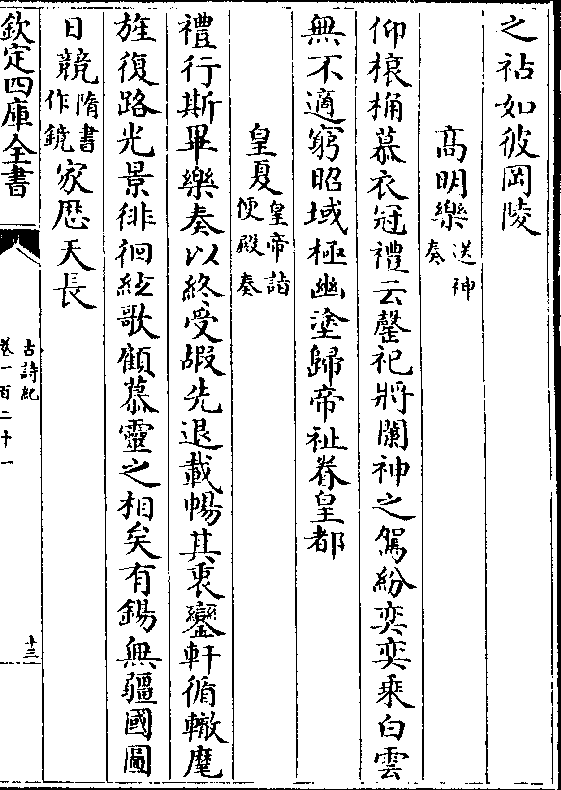 之祜如彼岡陵
髙明樂送神奏
仰榱桷慕衣冠禮云罄祀將闌神之駕紛奕奕乗白雲
無不適窮昭域極幽塗歸帝祉眷皇都
皇夏皇帝詣便殿奏
禮行斯畢樂奏以終受嘏先退載暢其衷鑾軒循轍麾
旌復路光景徘徊絃歌顧慕靈之相矣有錫無疆國圖
日競隋書作鏡家厯天長
欽定四庫全書
古詩紀
卷一百二十一
十三